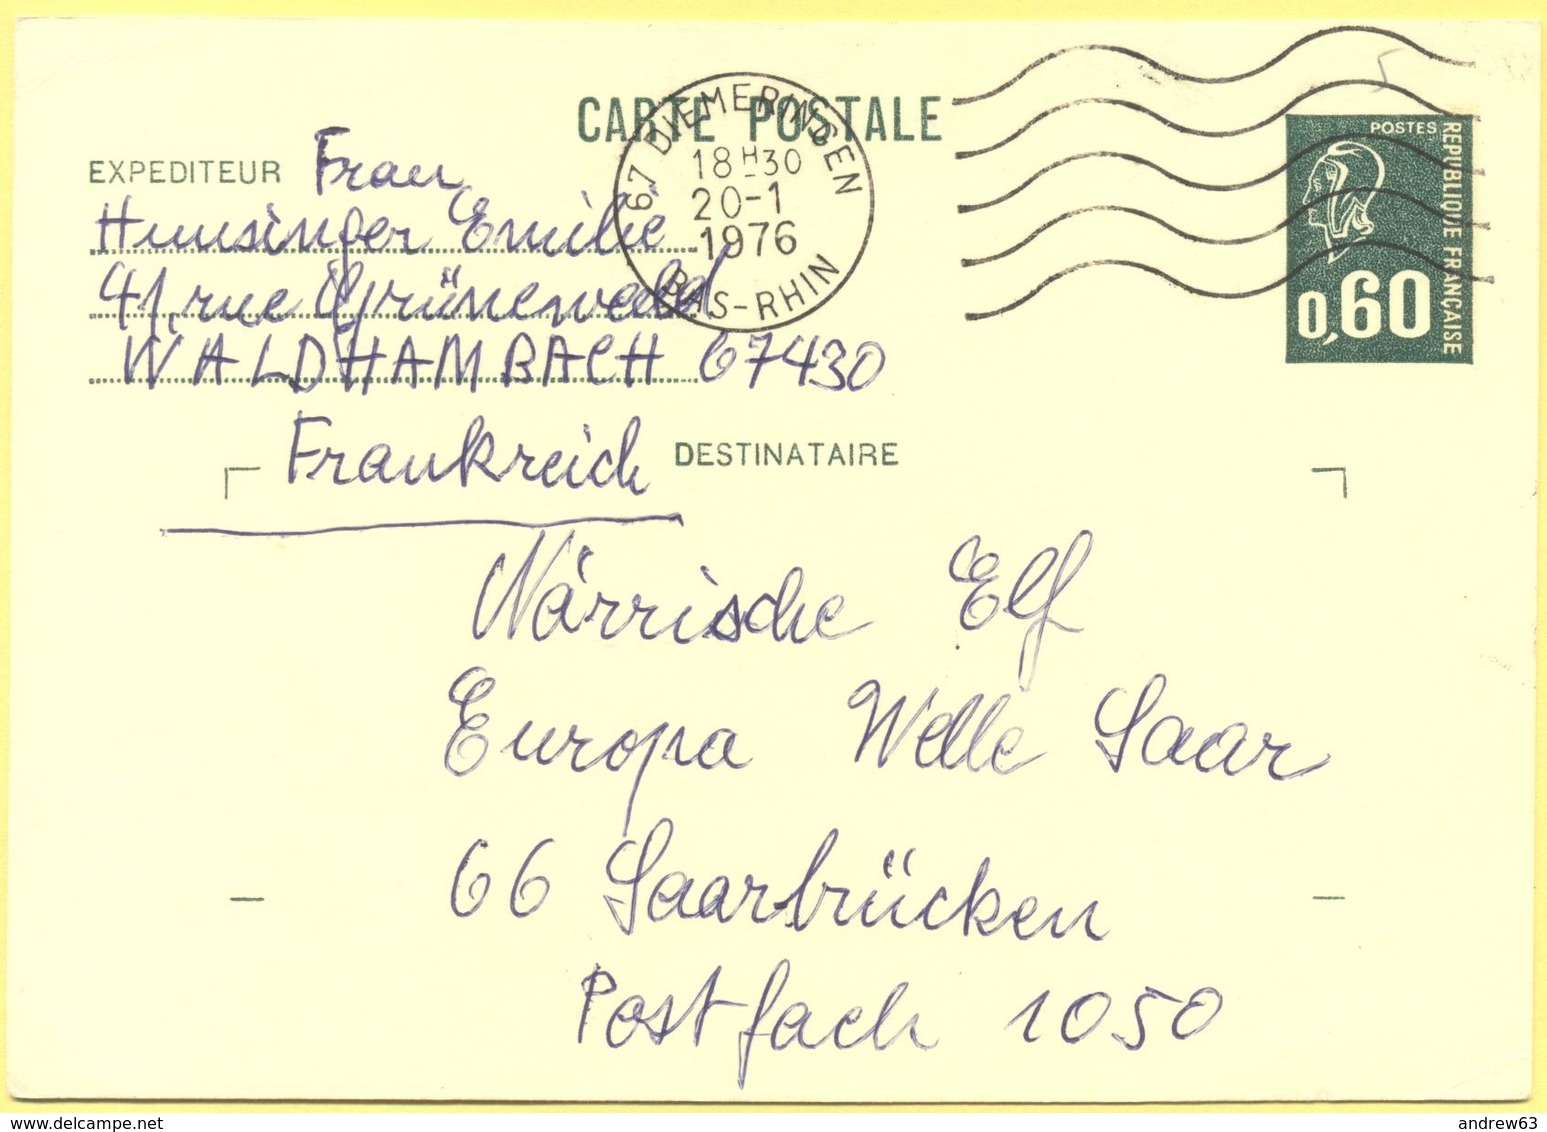 CARTE POSTALE
EXPEDITEUR Frau
Hunsinger Emilie
41, rue Grünewald
WALDHAMBACH 67430
Frankreich
67 DIEMERINGEN
18H30
20-1
1976
BAS-RHIN
POSTES
REPUBLIQUE FRANÇAISE
0,60
DESTINATAIRE
Närrische Elf
Europa Welle Saar
66 Saarbrücken
Postfach 1050
andrew63